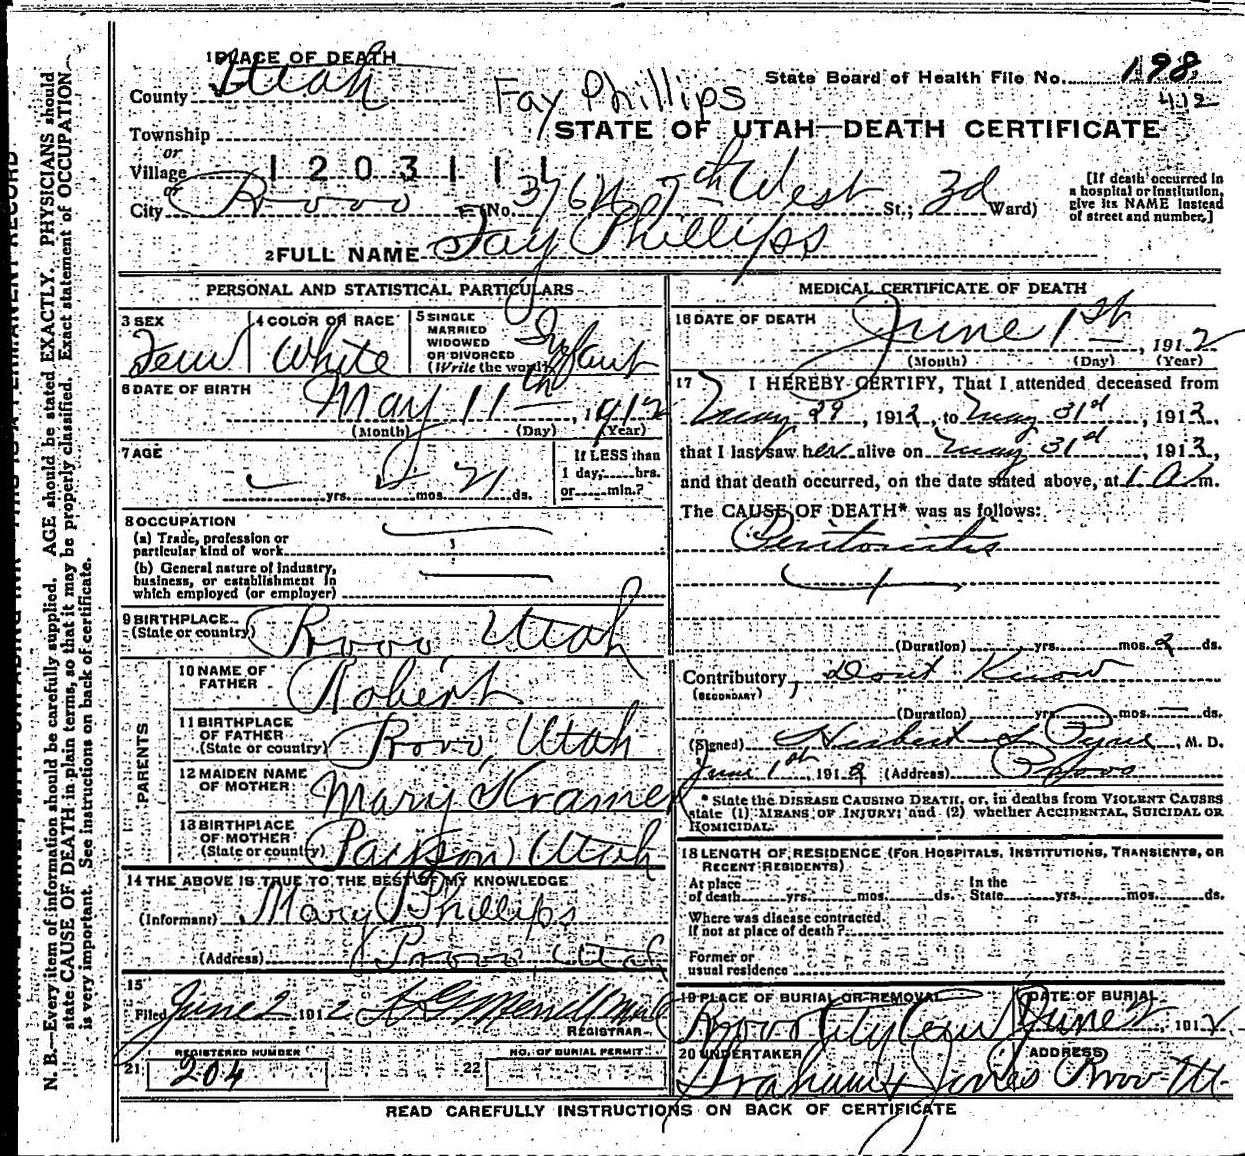 1 PLACE OF DEATH
County Utah
State Board of Health File No. 198
412
Fay Phillips
Township
STATE OF UTAH—DEATH CERTIFICATE
or
Village 1203111
or
City Provo (No. 376 N 7th West St.; 3d Ward)
[If death occurred in
a hospital or institution,
give its NAME instead
of street and number.]
2 FULL NAME Fay Phillips
PERSONAL AND STATISTICAL PARTICULARS
3 SEX Fem
4 COLOR OR RACE White
5 SINGLE
MARRIED
WIDOWED
OR DIVORCED
(Write the word) Infant
6 DATE OF BIRTH
May 11th, 1912
(Month) (Day) (Year)
7 AGE
If LESS than
1 day, hrs.
or min.?
yrs. mos. 21 ds.
8 OCCUPATION
(a) Trade, profession or
particular kind of work
(b) General nature of industry,
business, or establishment in
which employed (or employer)
9 BIRTHPLACE
(State or country) Provo, Utah
PARENTS
10 NAME OF
FATHER Robert
11 BIRTHPLACE
OF FATHER
(State or country) Provo, Utah
12 MAIDEN NAME
OF MOTHER Mary Kramer
13 BIRTHPLACE
OF MOTHER
(State or country) Payson Utah
14 THE ABOVE IS TRUE TO THE BEST OF MY KNOWLEDGE
(Informant) Mary Phillips
(Address) Provo, Utah
15
Filed June 2 1912
REGISTRAR
REGISTERED NUMBER
21 204
NO. OF BURIAL PERMIT
22
MEDICAL CERTIFICATE OF DEATH
16 DATE OF DEATH
June 1st, 1912
(Month) (Day) (Year)
17 I HEREBY CERTIFY, That I attended deceased from
May 29, 1912, to May 31st, 1912,
that I last saw her alive on May 31st, 1912,
and that death occurred, on the date stated above, at 1 A.m.
The CAUSE OF DEATH* was as follows:
Peritonitis
(Duration) yrs. mos. 2 ds.
Contributory Dont Know
(SECONDARY)
(Duration) yrs. mos. ds.
(Signed) Herbert S Pyne, M. D.
June 1st, 1912 (Address) Provo
* State the DISEASE CAUSING DEATH, or, in deaths from VIOLENT CAUSES
state (1) MEANS OF INJURY; and (2) whether ACCIDENTAL, SUICIDAL OR
HOMICIDAL.
18 LENGTH OF RESIDENCE (FOR HOSPITALS, INSTITUTIONS, TRANSIENTS, OR
RECENT RESIDENTS)
At place
of death yrs. mos. ds.
In the
State yrs. mos. ds.
Where was disease contracted,
If not at place of death?
Former or
usual residence
19 PLACE OF BURIAL OR REMOVAL
Provo City Cem
DATE OF BURIAL
June 2, 1912
20 UNDERTAKER
Graham & Jones
ADDRESS
Provo Ut.
READ CAREFULLY INSTRUCTIONS ON BACK OF CERTIFICATE
N. B.—Every item of information should be carefully supplied. AGE should be stated EXACTLY. PHYSICIANS should
state CAUSE OF DEATH in plain terms, so that it may be properly classified. Exact statement of OCCUPATION
is very important. See instructions on back of certificate.